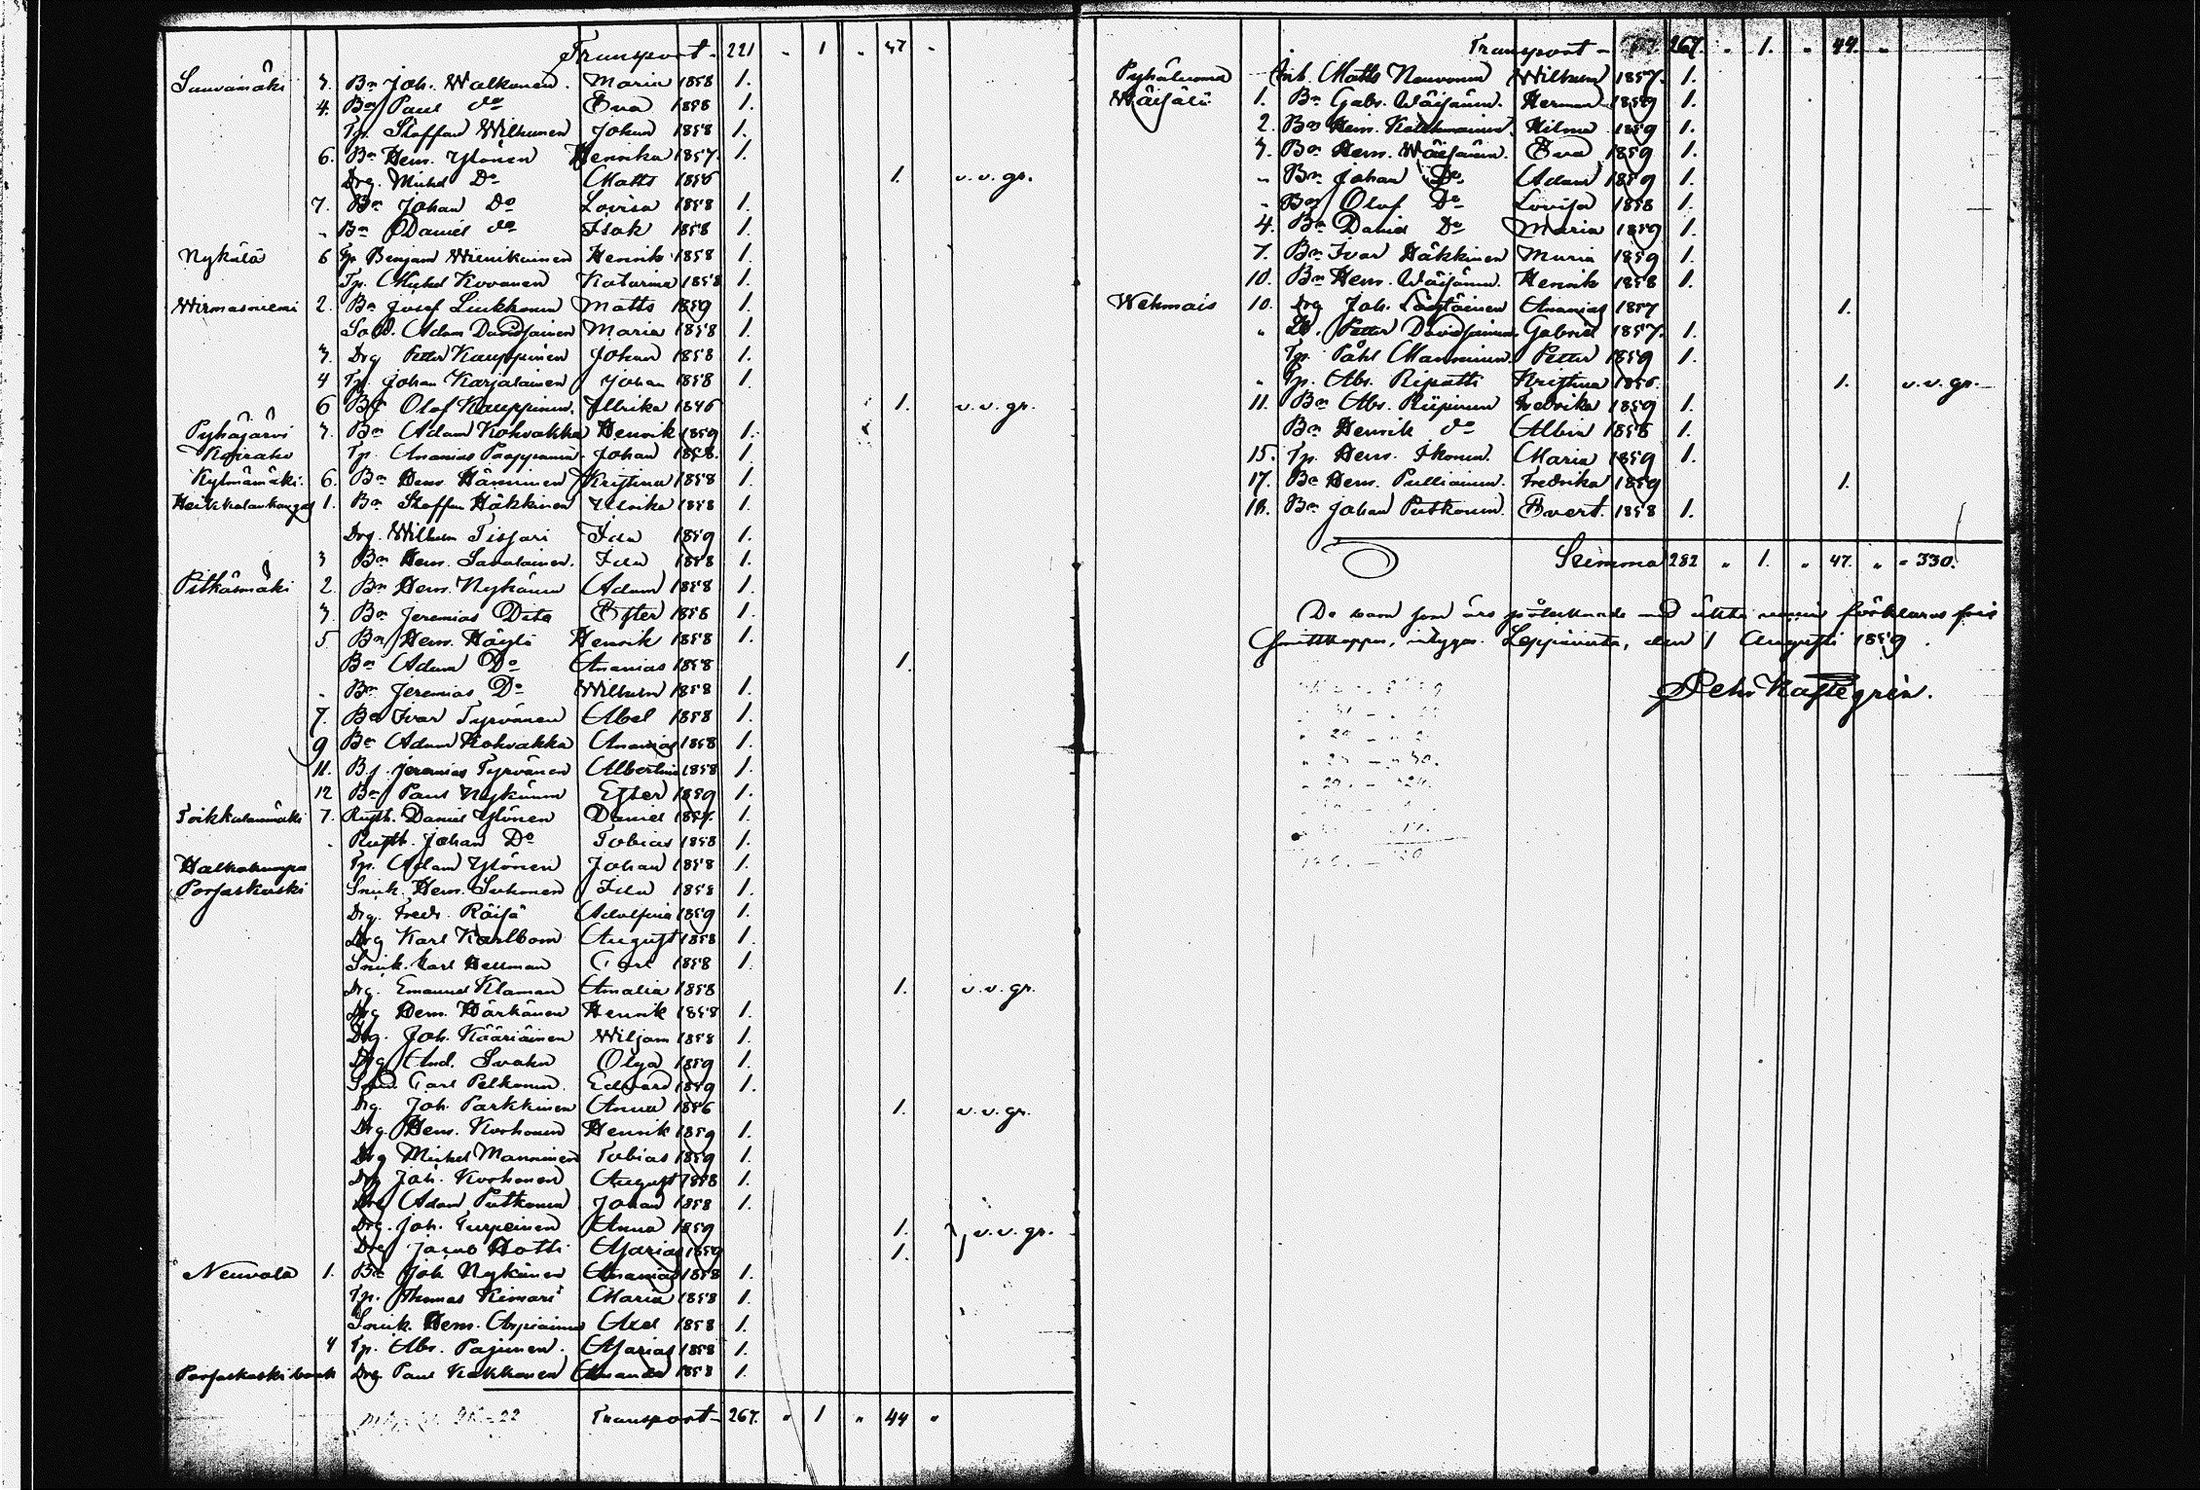 Transport - 221 " 1 " 47 "
3. Bn Joh. Walkonen Maria 1858 1.
4. Bn Paul do Eva 1858 1.
Tp. Staffan Wilhunen Johan 1858 1.
6. Bn Henr. Ylönen Henrika 1857. 1.
Drg. Michel Do Matts 1856 1. v.v.gr.
7. Bn Johan Do Lovisa 1858 1.
" Bn Daniel do Isak 1858 1.
Nykälä 6 Tp. Benjam Miinikainen Henrik 1858 1.
Tp. Michel Kovanen Katarina 1858 1.
Wirmasniemi 2. Bn Josef Liukkonen Matts 1859 1.
Sold. Adam Davidsainen Maria 1858 1.
3. Drg Petter Kauppinen Johan 1858 1.
4 Tp. Johan Karjalainen Johan 1858 1.
6 Bn Olof Kauppinen Ulrika 1846 1. v.v.gr.
Pyhäjärvi 3. Bn Adam Kohvakka Henrik 1859 1.
Tp. Ananias Johan 1858. 1.
Kylmämäki 6. Bn Henr. Hänninen Kristina 1858 1.
Heikkalankangas 1. Bn Staffan Häkkinen Ulrika 1858 1.
Drg. Wilhelm Tissari Ida 1859 1.
3 Bn Henr. Savolainen. Ida 1858 1.
Pitkämäki 2. Bn Henr. Nykänen Adam 1858 1.
3. Bn Jeremias Dito Ester 1858 1.
5 Bn Henr. Höylä Henrik 1858 1.
Bn Adam Do Ananias 1858 1.
" Bn Jeremias Do Wilhelm 1858 1.
7. Bn Ivar Tyrvänen Abel 1858 1.
9 Bn Adam Kohvakka Ananias 1858 1.
11. Bn Jeremias Tyrvänen Albertina 1858 1.
12 Bn Paul Nykänen Ester 1859 1.
Toikkalanmäki 7. Rusth. Daniel Ylönen Daniel 1857. 1.
" Rusth. Johan Do Tobias 1858 1.
Tp. Adam Ylönen Johan 1858 1.
Porsaskoski Snick. Henr. Suhonen Ida 1858 1.
Drg. Fredr. Räisä Adolfina 1859 1.
Drg Karl Karlbom August 1858 1.
Snick. Karl Hellman Carl 1858 1.
Drg. Emanuel Klaman Amalia 1858 1. v.v.gr.
Drg Henr. Härkänen Henrik 1858 1.
Drg. Joh. Kääriäinen Wiljam 1858 1.
Drg And. Svahn Olga 1859 1.
Carl Pelkonen Edvard 1859 1.
Drg. Joh. Parkkinen Anna 1856 1. v.v.gr.
Drg. Henr. Korhonen Henrik 1859 1.
Drg Michel Manninen Tobias 1859 1.
Drg Joh. Korhonen August 1858 1.
Drg Adam Putkonen Johan 1858 1.
Drg. Joh. Turpeinen Anna 1859 1. } v.v.gr.
Drg Jacob Hotti Esarias 1859 1.
Neuvola 1. Bn Joh Nykänen Ananias 1858 1.
Tp. Thomas Kimari Maria 1858 1.
Snick. Henr. Arpiainen Axel 1858 1.
4 Tp. Abr. Pajunen. Esarias 1858 1.
Porsaskoski bruk Drg Paul Kakkonen Amanda 1858 1.
Transport - 267. " 1 " 44 "
Transport - 267. " 1. " 44. "
Pyhäluoma Inh. Matts Neuvonen Wilhelm 1857. 1.
Wäisälä 1. Bn Gabr. Wäisänen. Herman 1859 1.
2. Bn Hein. Hilma 1859 1.
3. Bn Henr. Wäisänen. Eva 1859 1.
" Bn Johan Do Adam 1859 1.
" Bn Olof Do Lovisa 1858 1.
4. Bn Daniel Do Maria 1859 1.
7. Bn Ivar Häkkinen Maria 1859 1.
10. Bn Henr. Wäisänen. Henrik 1858 1.
Wehmais 10. Drg Joh. Ananias 1857 1.
" Petter Davidsainen Gabriel 1857. 1.
Tp. Påhl Manninen. Petter 1859 1.
" Tp. Abr. Ripatti Kristina 1856. 1. v.v.gr.
11. Bn Abr. Riipinen Fredrika 1859 1.
Bn Henrik do Albin 1858 1.
15. Tp. Henr. Ikonen. Maria 1859 1.
17. Bn Henr. Pulliainen. Fredrika 1859 1.
18. Bn Johan Putkonen. Evert. 1858 1.
Summa 282 " 1. " 47. " " 330.
De barn som äro med förklaras från
Smittkoppor, intygas. Leppävirta, den 1 Augusti 1859.
Pehr Kastegrén.